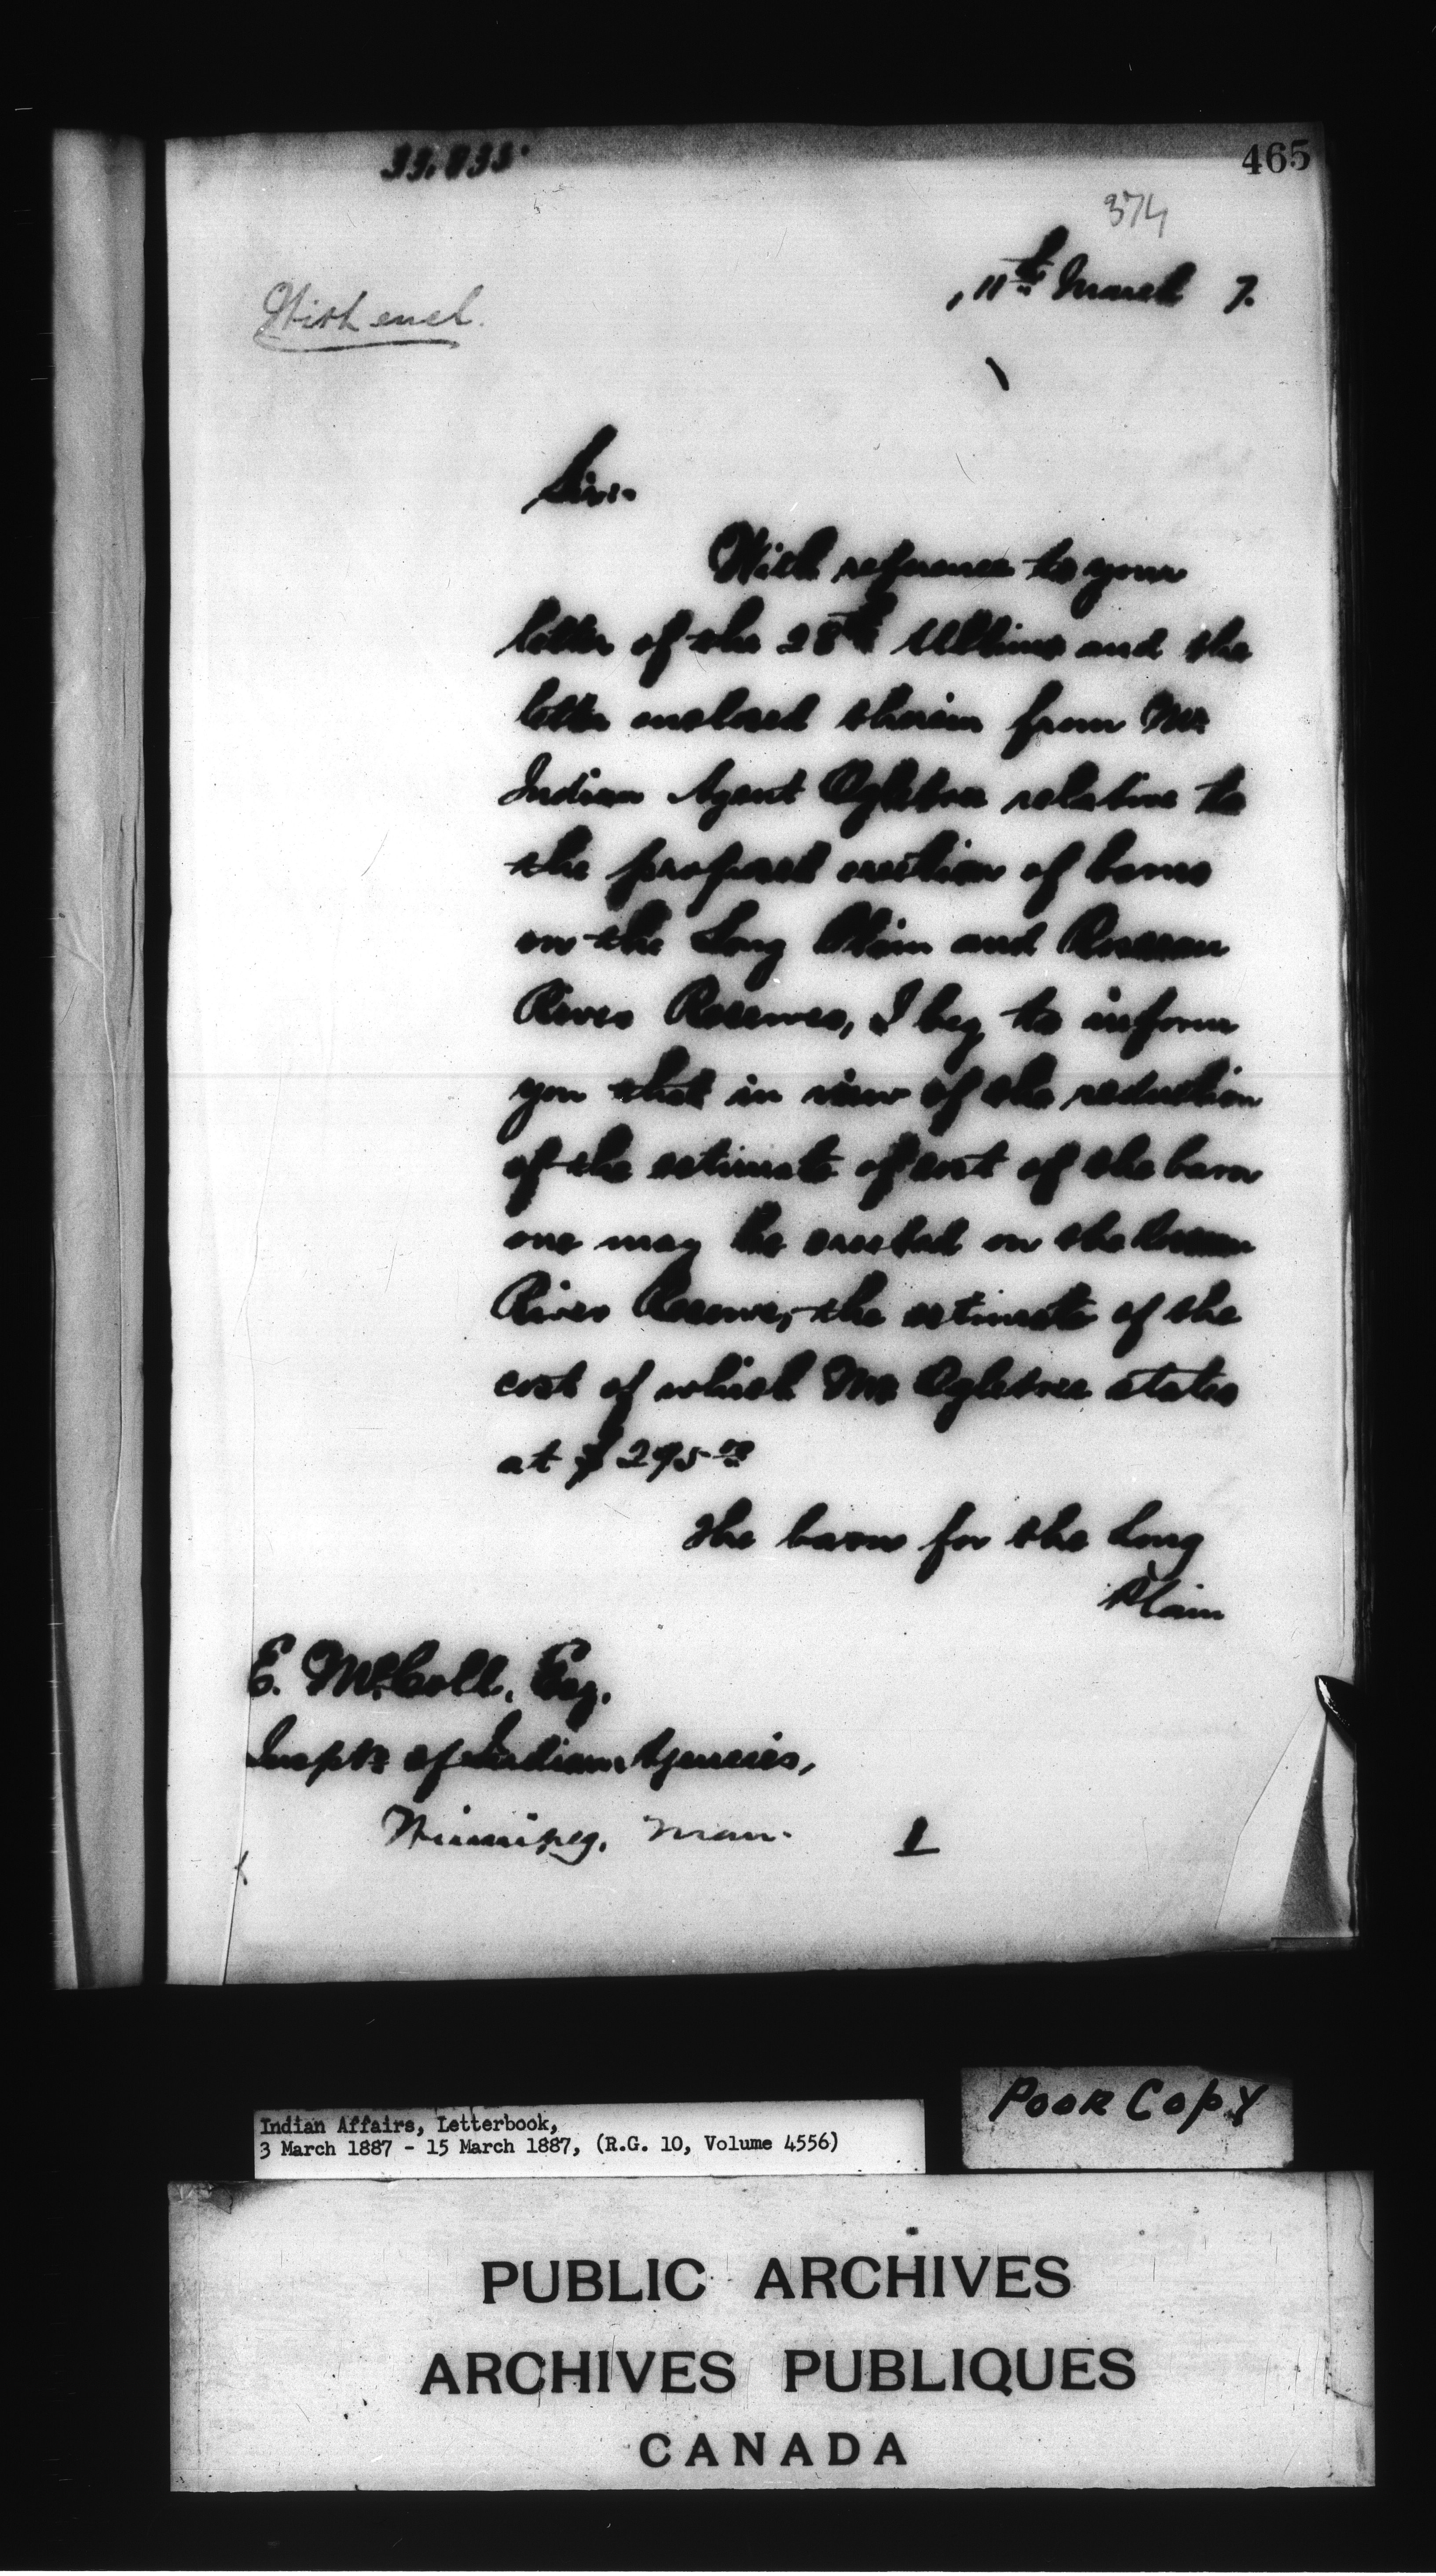 465
374
11th March 7.
With encl.
Sir:-
With reference to your
letter of the 28th Ultimo and the
letter enclosed therein from Mr
Indian Agent Ogletree relative to
the proposed erection of barns
on the Long Plain and Roseau
River Reserves, I beg to inform
you that in view of the reduction
of the estimate of cost of the barn
one may be erected on the Roseau
River Reserve, the estimate of the
cost of which Mr Ogletree states
at $295.00
The barn for the Long
Plain
E. McColl, Esq.
Insptr of Indian Agencies,
Winnipeg, Man.
Indian Affairs, Letterbook,
3 March 1887 - 15 March 1887, (R.G. 10, Volume 4556)
POOR COPY
PUBLIC ARCHIVES
ARCHIVES PUBLIQUES
CANADA